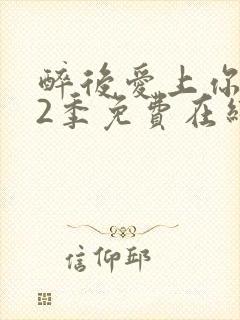 醉後愛上你
2季免費在線
信仰邱